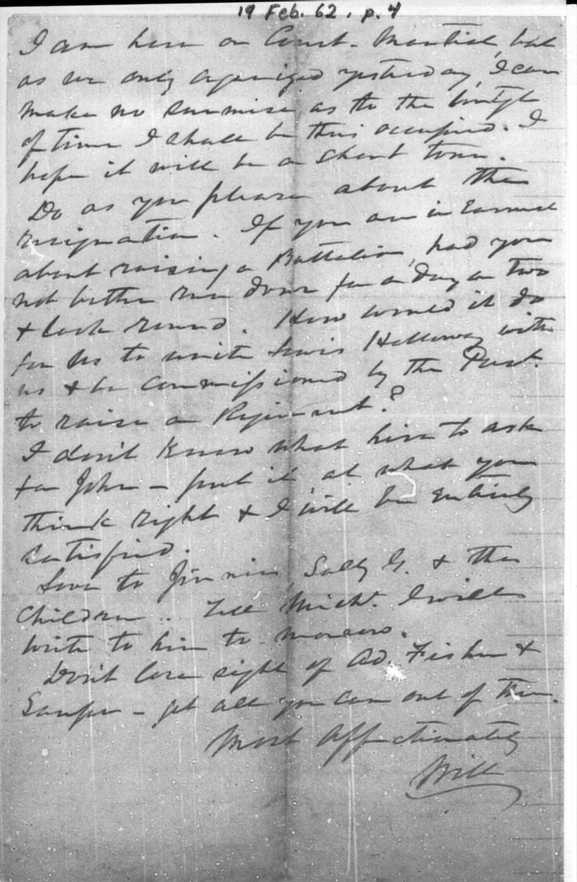 19 Feb. 62, p. 4
I am here on Court-Martial, but
as we only organized yesterday, I can
make no surmise as to the length
of time I shall be thus occupied. I
hope it will be a short tour.
Do as you please about the
resignation. If you are in Earnest
about raising a Battalion, had you
not better run down for a day or two
& look round. How would it do
for us to unite Lewis Holloway with
us & be commissioned by the Prest.
to raise a Regiment?
I don't know what hire to ask
for John – put it at what you
think right & I will be entirely
satisfied.
Love to Jinnie, Sally G. & the
Children.. Tell Michl. I will
write to him to morrow.
Don't lose sight of Ad. Fisher &
– get all you can out of them.
Most Affectionately
Will